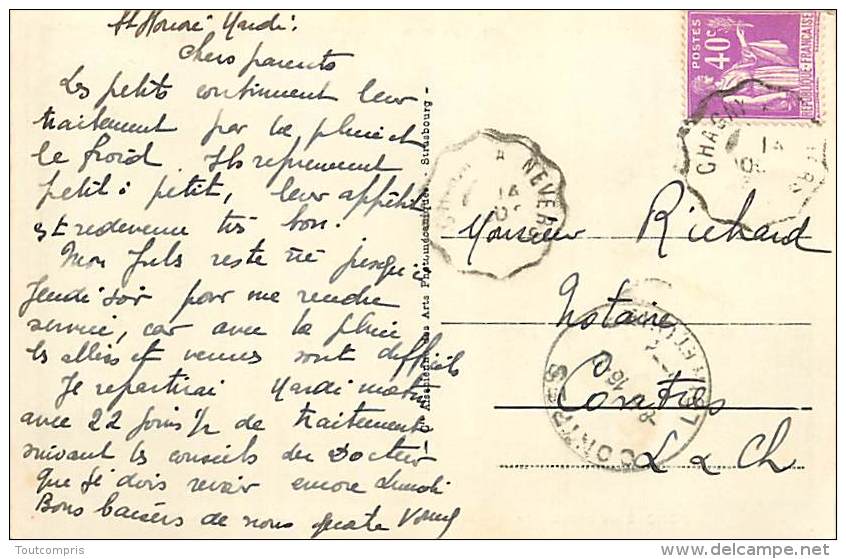 St Honoré Mardi.
Chers parents
Les petits continuent leur
traitement par la pluie et
le froid. Ils reprennent
petit à petit, leur appétit
est redevenu très bon.
Mon Jules reste ici jusqu'à
Jeudi soir pour me rendre
service, car avec la pluie
les allées et venues sont difficiles
Je repartirai Mardi matin
avec 22 jours 1/2 de traitement
suivant les conseils du Docteur
que je dois revoir encore
Bons baisers de nous quatre
des Arts Photomécaniques - Strasbourg -
POSTES
40c
REPUBLIQUE FRANÇAISE
A NEVERS
14
CHAGNY
14
Monsieur Richard
Notaire
Contres
L & Ch
CONTRES
16
Toutcompris
delcampe.net